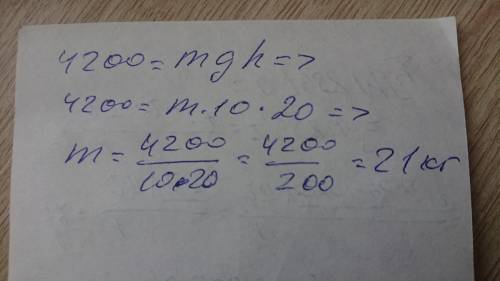 4200 = mgh =>
4200 = m·10·20 =>
m = 4200/10·20 = 4200/200 = 21 кг